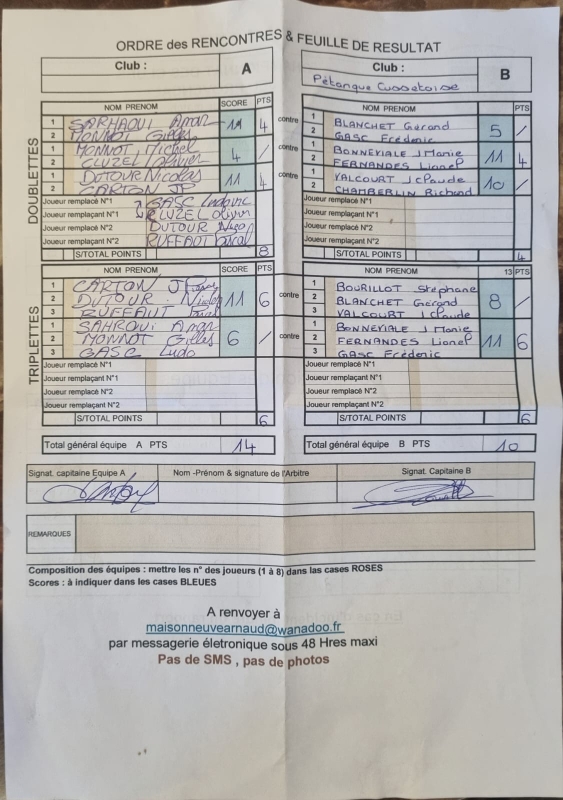 ORDRE des RENCONTRES & FEUILLE DE RESULTAT
Club : A
Club : B
Pétanque Cussetoise
DOUBLETTES
NOM PRENOM SCORE PTS
1 SARHAOUI Amar 11 4
2 MONNOT Gilles
1 MONNOT Michel 4 /
2 CLUZEL Olivier
1 DUTOUR Nicolas 11 4
2 CARTON JP
Joueur remplacé N°1 GASC Ludovic
Joueur remplaçant N°1 CLUZEL Olivier
Joueur remplacé N°2 DUTOUR Nicol
Joueur remplaçant N°2 RUFFAUT
S/TOTAL POINTS 8
contre
contre
contre
NOM PRENOM PTS
1 BLANCHET Gérand 5 /
2 GASC Frédéric
1 BONNEVIALE J Marie 11 4
2 FERNANDES Lionel
1 VALCOURT J Claude 10 /
2 CHAMBERLIN Richard
Joueur remplacé N°1
Joueur remplaçant N°1
Joueur remplacé N°2
Joueur remplaçant N°2
S/TOTAL POINTS 4
TRIPLETTES
NOM PRENOM SCORE PTS
1 CARTON J 11 6
2 DUTOUR
3 RUFFAUT
1 SAHROUI Amar 6 /
2 MONNOT Gilles
3 GASC Ludo
Joueur remplacé N°1
Joueur remplaçant N°1
Joueur remplacé N°2
Joueur remplaçant N°2
S/TOTAL POINTS 6
contre
contre
NOM PRENOM 13 PTS
1 BOURILLOT Stéphane 8 /
2 BLANCHET Gérand
3 VALCOURT J Claude
1 BONNEVIALE J Marie 11 6
2 FERNANDES Lionel
3 GASC Frédéric
Joueur remplacé N°1
Joueur remplaçant N°1
Joueur remplacé N°2
Joueur remplaçant N°2
S/TOTAL POINTS 6
Total général équipe A PTS 14
Total général équipe B PTS 10
Signat. capitaine Equipe A
Nom -Prénom & signature de l'Arbitre
Signat. Capitaine B
REMARQUES
Composition des équipes : mettre les n° des joueurs (1 à 8) dans las cases ROSES
Scores : à indiquer dans les cases BLEUES
A renvoyer à
maisonneuvearnaud@wanadoo.fr
par messagerie életronique sous 48 Hres maxi
Pas de SMS , pas de photos